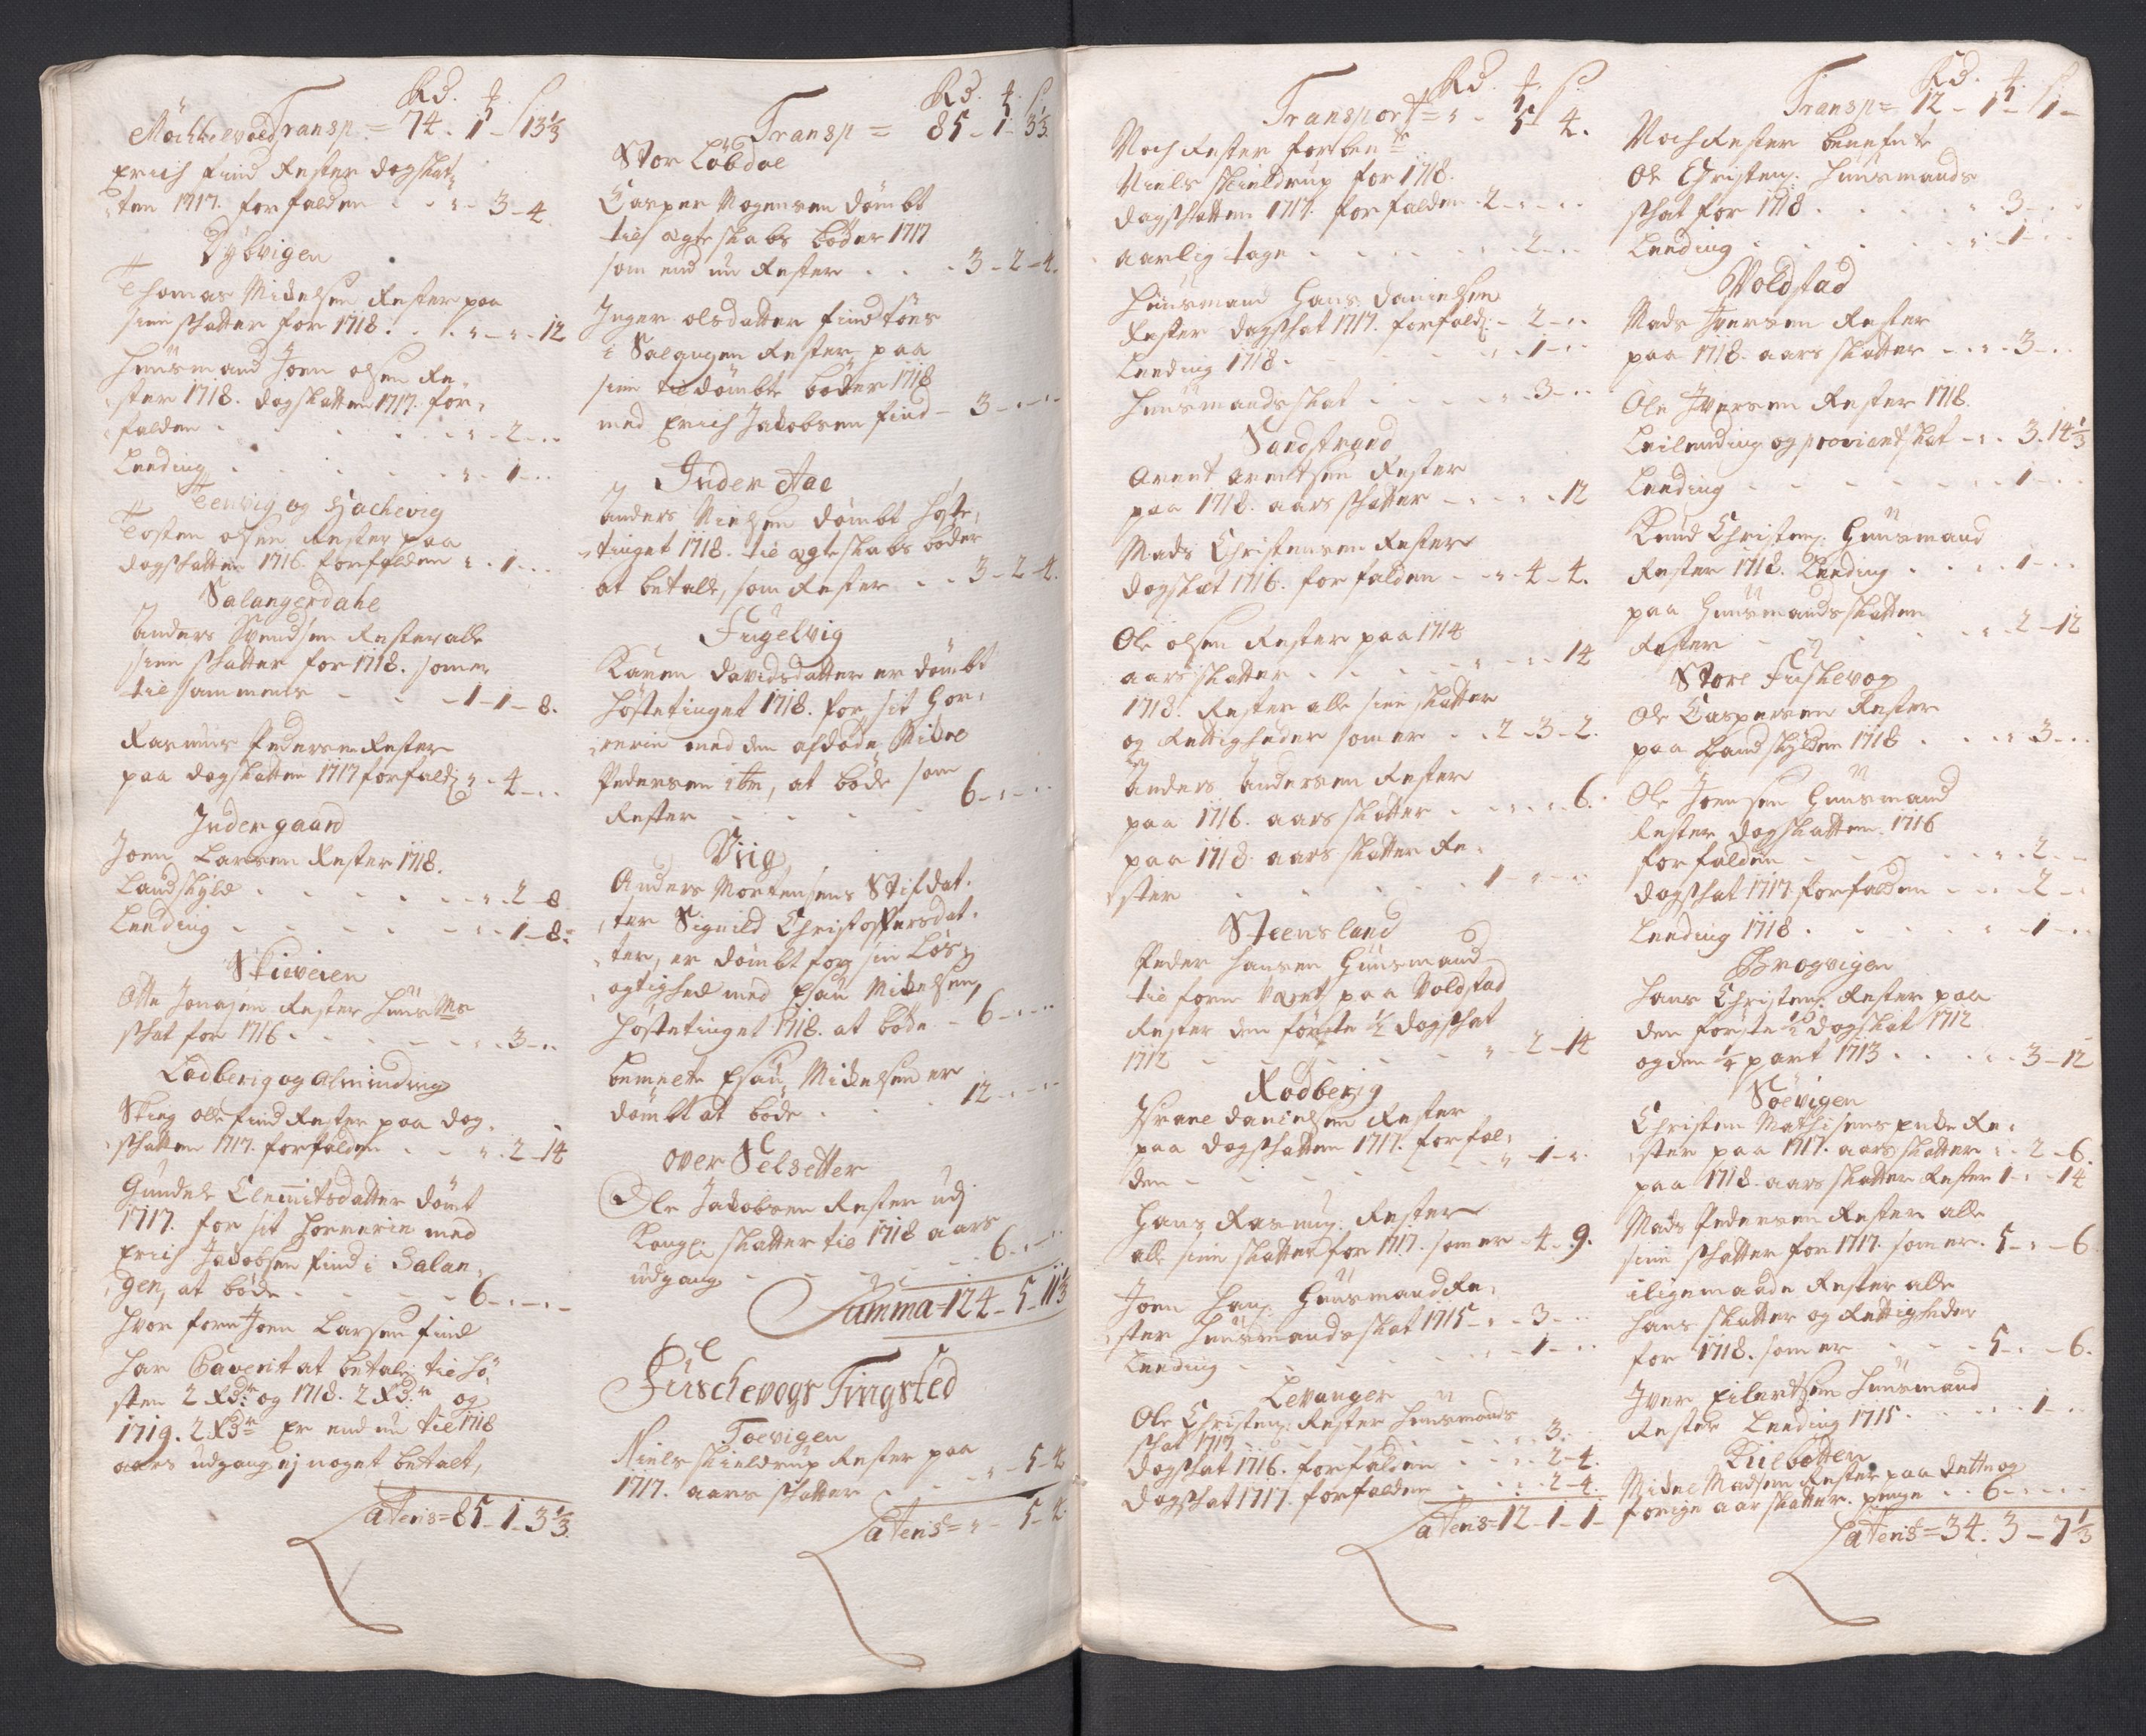 Rd. ¶ ß
Møchkelvold Transp = 74 - 1 - 13⅓
Erich Find Rester dagskat-
ten 1717. forfalden . . „ - 3 - 4.
Dybvigen
Thomas Michelsen Rester paa
sine schatter for 1718 . . . „ - „ - 12
Huusmand Joen olsen Re-
ster 1718. dagskatten 1717. for-
falden . . . . . „ - 2 - ..
Leeding . . . . . „ - 1 - ..
Tennvig og Hachevig
Tosten olsen Rester paa
dagskatten 1716. forfalden „ . 1 - ..
Salangerdahl
Anders Svendsen Rester alle
sine schatter for 1718. som er
til sammens - - - 1 - 1 - 8.
Rasmus Pedersen Rester
paa dagskatten 1717 forfald: „ - 4 - ..
Indergaard
Joen Larsen Rester 1718.
Landskyld . . . . . „ . 2 - 8
Leeding - - - - - „ . 1 - 8:
Skieveien
Otte Jonasen Rester Huusms
skat for 1716 . . . . „ . 3 - ..
Ladberig og Alminding
Skieg olle find Rester paa dag-
schatten 1717. forfalden . . „ . 2 - 14
Gundele Clemmitsdatter dømt
1717. for sit horrerie med
Erich Jacobsen find i Salan-
gen, at bøde - - - - 6 - „ - „ -
Hvor forn Joen Larsen find
har Caverit at betale til Hø-
sten 2 Rdr og 1718. 2 Rdr og
1719. 2 Rdr Er end nu til 1718
aars udgang ej noget betalt,
Lateris = 85 - 1 - 3⅓.
Rd. ¶ ß
Transp = 85 - 1 - 3⅓.
Stor Løbdal
Casper Mogensen dømbt
til ægteskabs bøder 1717
som end nu Rester . . . 3 - 2 - 4.
Inger olsdatter find tøes
i Salangen Rester paa
sine tildømbte bøder 1718
med Erich Jakobsen find - 3 - „ - ..
Inder Aae
Anders Nielsen dømbt Høste-
tinget 1718. til ægteskabs bøder
at betale, som Rester . . 3 - 2 - 4.
Fugelvig
Karen Davidsdatter er dømbt
Høstetinget 1718. for sit Hor-
rerie med den afdøde Mikel
Pedersen ibm, at bøde som
Rester - - - 6 - „ - ..
Viig
Anders Mortensens Stifdat-
ter Signild Christoffersdat-
ter, er dømbt for sin Løs-
agtighed med Esau Mikelsen,
Høstetinget 1718. at bøde - 6 - „ - ..
bemelte Esau Mikelsen er
dømbt at bøde . . . 12 - „ - ..
over Selsetter
Ole Jakobsen Rester udj
Kongl: skatter til 1718 aars
udgang - - - - - 6 - „ - ..
Summa = 124 - 5 - 11⅓
Fuschevogs Tingsted
Toevigen
Niels Skieldrup Rester paa
1717. aars schatter . . - „ - 5 - 4
Lateris = „ - 5 - 4.
Rd. ¶ ß
Transport = „ - 5 - 4.
Noch Rester forbente
Niels Skieldrup for 1718.
dagschatten 1717. forfalden . 2 - „ - ..
aarlig tage . . . . . „ . 2 - ..
Huusmand Hans Danielsen
Rester dagschat 1717. forfald: - 2 - ..
Leeding 1718 . - - - - „ . 1 - ..
Huusmandsskat . . . . „ . 3 - ..
Sandstrand
Arent Arentsen Rester
paa 1718. aars schatter - „ - „ . 12
Mads Christensen Rester
dagskat 1716. forfalden - - „ . 4 - 4.
Ole olsen Rester paa 1714
aarsschatter . . . . „ - „ . 14
1718. Rester alle sine skatter
og Rettigheder som er . . 2 - 3 - 2.
Anders Andersen Rester
paa 1716. aars skatter . . „ . „ . 6.
paa 1718 aars skatter Re-
ster . . . . . 1 - „ - ..
Steensland
Peder Hansen Huusmand
til forn Været paa Voldstad
Rester den første ½ dagschat
1712 - - - - - „ - 2 - 14
Rodberig
Israel Danielsen Rester
paa dagschatten 1717. forfal-
den - - - - - „ - 1 - „.
Hans Rasmus: Rester
alle sine skatter for 1717. som er - 4 . „ 9.
Joen Hans: Huusmand Re-
ster Huusmandsskat 1715 - „ - 3 - ..
Leeding - - - - - „ . 1 - ..
Levanger
Ole Christens: Rester Huusmands
skat 1717 - - - - - „ . 3.
dagschat 1716. forfalden - - „ . 2 - 4.
dagschat 1717. forfalden . . . 2 - 4.
Lateris = 12 - 1 - 1 -
Rd. ¶ ß
Transp = 12 - 1 - 1 -
Noch Rester benefnte
Ole Christens: Huusmands
schat for 1718 . . . . „ 3 - ..
Leeding . . . . . „ . 1 - ..
Voldstad
Mads Iversen Rester
paa 1718. aars skatter - . „ . 3 - ..
Ole Iversen Rester 1718.
Leilending og proviantskat - „ . 3. 14⅓
Leeding - - - - - „ . 1 - ..
Knud Christens: Huusmand
Rester 1718. Leeding . . . „ . 1 - ..
paa Huusmandsskatten
Rester - - - - „ . 2 - 12
Store Fuskevog
Ole Caspersen Rester
paa Landskylden 1718 . . . „ 3 - ..
Ole Joensen Huusmand
Rester dagskatten 1716
forfalden - - - - „ . 2 - -
dagschat 1717 forfalden - „ . 2 - .
Leeding 1718 . . . . . „ . 1 - ..
Brogvigen
Hans Christens: Rester paa
den første ½ dagskat 1712
og den ¼ part 1713 . . . „ . 3 - 12
Søevigen
Christen Mathisens Enke Re-
ster paa 1717. aars skatter „ . 2 - 6.
paa 1718 aars skatter Rester 1 - „ - 14
Mads Pedersen Rester alle
sine schatter for 1717. som er . 5 - „ - 6
iligemaade Rester alle
hans skatter og Rettigheder
for 1718. som er - - - 5 - „ - 6.
Iver Eilertsen Huusmand
Rester Leeding 1715 . . . „ . 1 - ..
Kilbotten
Mikel Madsen Rester paa dette og
forige aar skatter. penge . . 6 - „ - ..
Lateris = 34. 3 - 7⅓